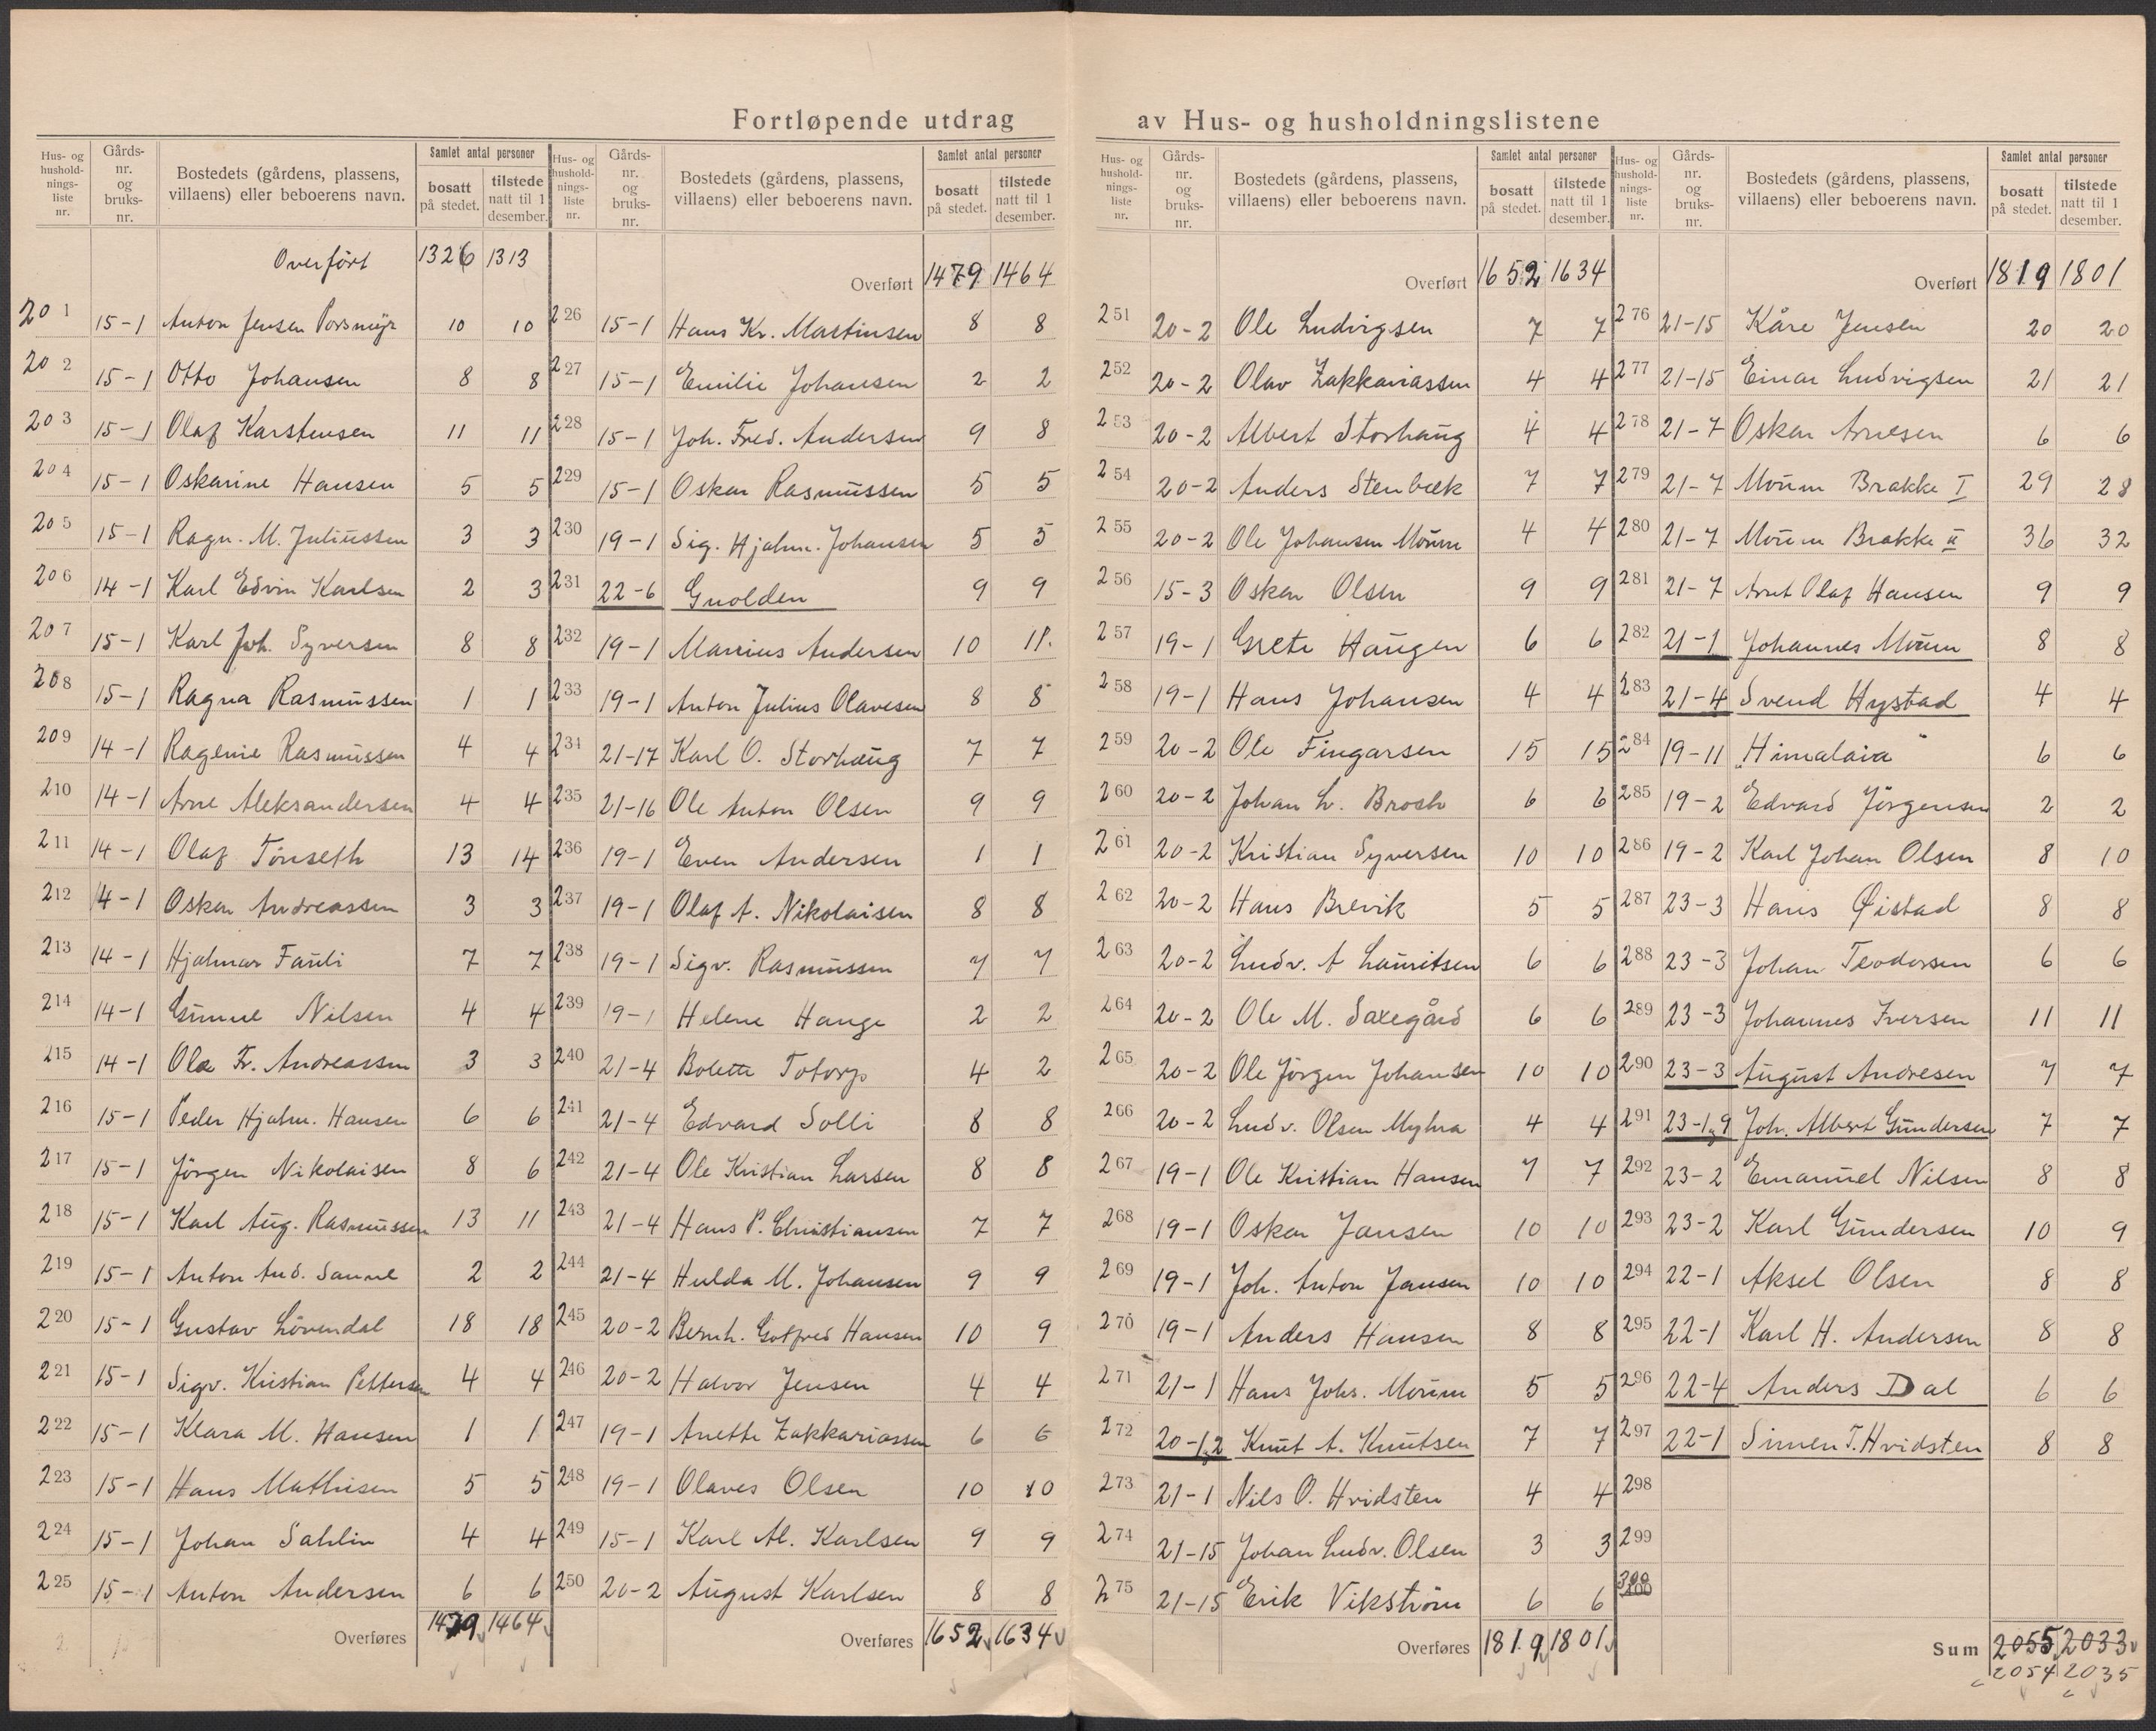 Fortløpende utdrag av Hus- og husholdningslistene
Hus- og husholdnings-liste nr. | Gårds-nr. og bruks-nr. | Bostedets (gårdens, plassens, villaens) eller beboerens navn. | Samlet antal personer: bosatt på stedet. | tilstede natt til 1 desember.
Overført 1326 1313
201 15-1 Anton Jensen Porsmyr 10 10
202 15-1 Otto Johansen 8 8
203 15-1 Olaf Karstensen 11 11
204 15-1 Oskarine Hansen 5 5
205 15-1 Ragn. M. Juliussen 3 3
206 14-1 Karl Edvin Karlsen 2 3
207 15-1 Karl Joh. Syversen 8 8
208 15-1 Ragna Rasmussen 1 1
209 14-1 Ragenie Rasmussen 4 4
210 14-1 Arne Aleksandersen 4 4
211 14-1 Olaf Tønseth 13 14
212 14-1 Oskar Andreassen 3 3
213 14-1 Hjalmar Fauli 7 7
214 14-1 Gunne Nilsen 4 4
215 14-1 Ola Fr. Andreassen 3 3
216 15-1 Peder Hjalm. Hansen 6 6
217 15-1 Jörgen Nikolaisen 8 6
218 15-1 Karl Aug. Rasmussen 13 11
219 15-1 Anton And. Sanne 2 2
220 15-1 Gustav Lövendal 18 18
221 15-1 Sigv. Kristian Pettersen 4 4
222 15-1 Klara M. Hansen 1 1
223 15-1 Hans Mathisen 5 5
224 15-1 Johan Sahlin 4 4
225 15-1 Anton Andersen 6 6
Overføres 1479 1464
Hus- og husholdnings-liste nr. | Gårds-nr. og bruks-nr. | Bostedets (gårdens, plassens, villaens) eller beboerens navn. | Samlet antal personer: bosatt på stedet. | tilstede natt til 1 desember.
Overført 1479 1464
226 15-1 Hans Kr. Martinsen 8 8
227 15-1 Emilie Johansen 2 2
228 15-1 Joh. Fred. Andersen 9 8
229 15-1 Oskar Rasmussen 5 5
230 19-1 Sig. Hjalm. Johansen 5 5
231 22-6 Gnolden 9 9
232 19-1 Marius Andersen 10 11.
233 19-1 Anton Julius Olavesen 8 8
234 21-17 Karl O. Storhaug 7 7
235 21-16 Ole Anton Olsen 9 9
236 19-1 Even Andersen 1 1
237 19-1 Olaf A. Nikolaisen 8 8
238 19-1 Sigv. Rasmussen 7 7
239 19-1 Helene Hange 2 2
240 21-4 Bolette Totorp 4 2
241 21-4 Edvard Solli 8 8
242 21-4 Ole Kristian Larsen 8 8
243 21-4 Hans P. Christiansen 7 7
244 21-4 Hulda M. Johansen 9 9
245 20-2 Bernh. Gotfred Hansen 10 9
246 20-2 Halvor Jensen 4 4
247 19-1 Anette Zakkariassen 6 6
248 19-1 Olaves Olsen 10 10
249 15-1 Karl Al. Karlsen 9 9
250 20-2 August Karlsen 8 8
Overføres 1652 1634
Hus- og husholdnings-liste nr. | Gårds-nr. og bruks-nr. | Bostedets (gårdens, plassens, villaens) eller beboerens navn. | Samlet antal personer: bosatt på stedet. | tilstede natt til 1 desember.
Overført 1652 1634
251 20-2 Ole Ludvigsen 7 7
252 20-2 Olav Zakkariassen 4 4
253 20-2 Albert Storhaug 4 4
254 20-2 Anders Stenbæk 7 7
255 20-2 Ole Johansen Moum 4 4
256 15-3 Oskar Olsen 9 9
257 19-1 Grete Haugen 6 6
258 19-1 Hans Johansen 4 4
259 20-2 Ole Fingarsen 15 15
260 20-2 Johan L. Brosk 6 6
261 20-2 Kristian Syversen 10 10
262 20-2 Hans Brevik 5 5
263 20-2 Ludv. A Lauritsen 6 6
264 20-2 Ole M. Saxegård 6 6
265 20-2 Ole Jörgen Johansen 10 10
266 20-2 Ludv. Olsen Myhra 4 4
267 19-1 Ole Kristian Hansen 7 7
268 19-1 Oskar Jansen 10 10
269 19-1 Joh. Anton Jansen 10 10
270 19-1 Anders Hansen 8 8
271 21-1 Hans Johs. Moum 5 5
272 20-1,2 Knut A. Knutsen 7 7
273 21-1 Nils O. Hvidsten 4 4
274 21-15 Johan Ludv. Olsen 3 3
275 21-15 Erik Vikström 6 6
Overføres 1819 1801
Hus- og husholdnings-liste nr. | Gårds-nr. og bruks-nr. | Bostedets (gårdens, plassens, villaens) eller beboerens navn. | Samlet antal personer: bosatt på stedet. | tilstede natt til 1 desember.
Overført 1819 1801
276 21-15 Kåre Jensen 20 20
277 21-15 Einar Ludvigsen 21 21
278 21-7 Oskar Arnesen 6 6
279 21-7 Moum Brakke I 29 28
280 21-7 Moum Brakke II 36 32
281 21-7 Arnt Olaf Hansen 9 9
282 21-1 Johannes Moum 8 8
283 21-4 Svend Hystad 4 4
284 19-11 "Himalaia" 6 6
285 19-2 Edvard Jörgensen 2 2
286 19-2 Karl Johan Olsen 8 10
287 23-3 Hans Øistad 8 8
288 23-3 Johan Teodorsen 6 6
289 23-3 Johannes Iversen 11 11
290 23-3 August Andresen 7 7
291 23-1,9 Joh. Albert Gundersen 7 7
292 23-2 Emanuel Nilsen 8 8
293 23-2 Karl Gundersen 10 9
294 22-1 Aksel Olsen 8 8
295 22-1 Karl H. Andersen 8 8
296 22-4 Anders Dal 6 6
297 22-1 Simen T. Hvidsten 8 8
298
299
300
Sum 2055 2033
2054 2035